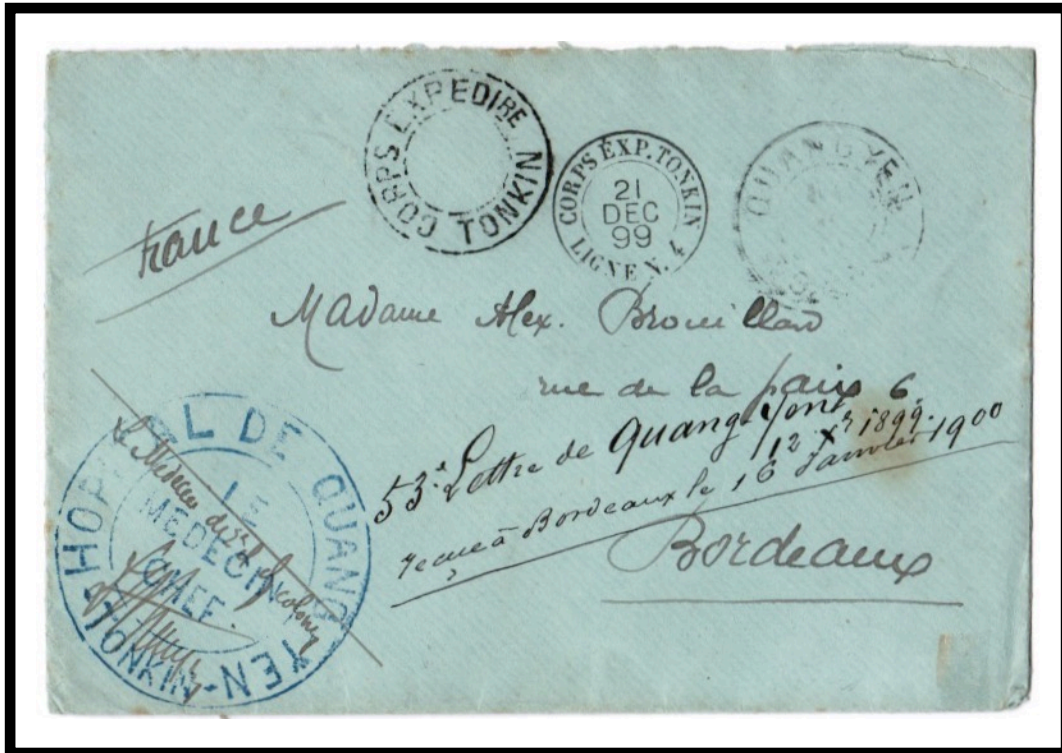 CORPS EXPEDIRE TONKIN
CORPS EXP. TONKIN
21
DEC
99
LIGNE N. 4
QUANG YEN
france
Madame Alex. Brouillaud
rue de la paix 6
53e Lettre de Quang Yen
12 Xr 1899.
reçue à Bordeaux le 16 Janvier 1900
Bordeaux
HOPITAL DE QUANG YEN - TONKIN
LE
MEDECIN
CHEF
Le Médecin des colonies